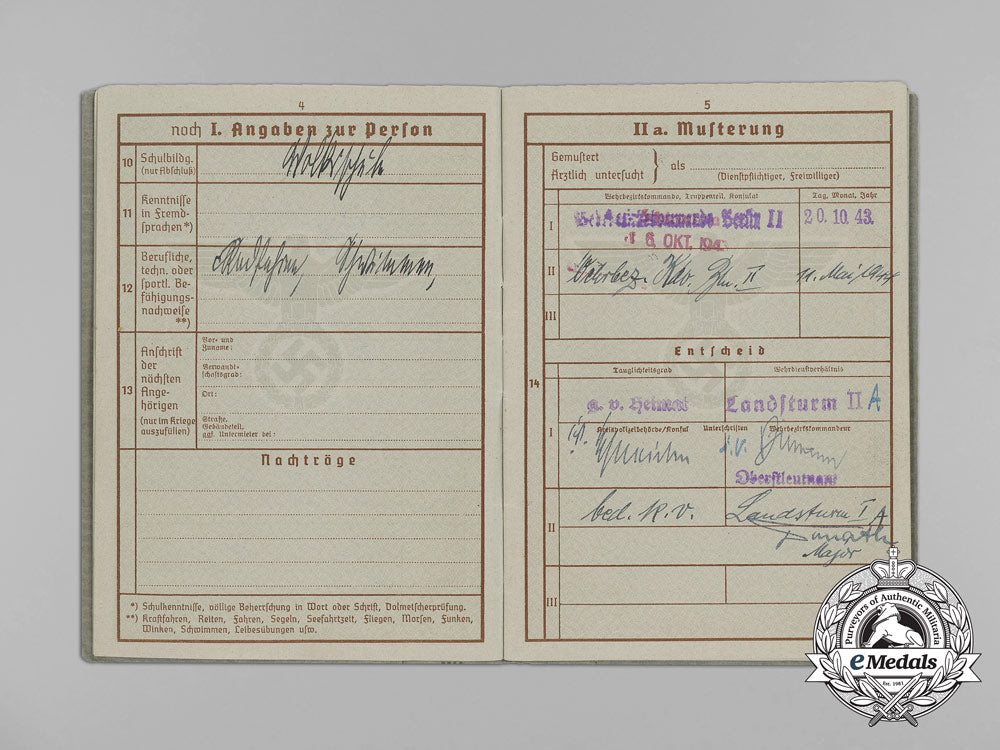 4
noch I. Angaben zur Person
10 Schulbildg.
(nur Abschluß)
Volksschule
11 Kenntnisse
in Fremd-
sprachen*)
12 Berufliche,
techn. oder
sportl. Be-
fähigungs-
nachweise
**)
Radfahren, Schwimmen,
13 Anschrift
der
nächsten
Ange-
hörigen
(nur im Kriege
auszufüllen)
Vor- und
Zuname:
Verwandt-
schaftsgrad:
Ort:
Straße,
Gebäudeteil,
ggf. Untermieter bei:
Nachträge
*) Schulkenntnisse, völlige Beherrschung in Wort oder Schrift, Dolmetscherprüfung.
**) Kraftfahren, Reiten, Fahren, Segeln, Seefahrtzeit, Fliegen, Morsen, Funken,
Winken, Schwimmen, Leibesübungen usw.
5
IIa. Musterung
Gemustert
Ärztlich untersucht } als
(Dienstpflichtiger, Freiwilliger)
Wehrbezirkskommando, Truppenteil, Konsulat
Tag, Monat, Jahr
I Berlin II 20.10.43.
6. OKT. 194
II Wehrbez. Kdo. Bln. II 11. Mai 1944
III
Entscheid
14
Tauglichkeitsgrad
Wehrdienstverhältnis
I g. v. Heimat Landsturm II A
Kreispolizeibehörde/Konsul
Unterschriften
Wehrbezirkskommandeur
i.V.
Oberstleutnant
II bed. k.v. Landsturm I A
Major
III
Purveyors of Authentic Militaria
eMedals
Est. 1981